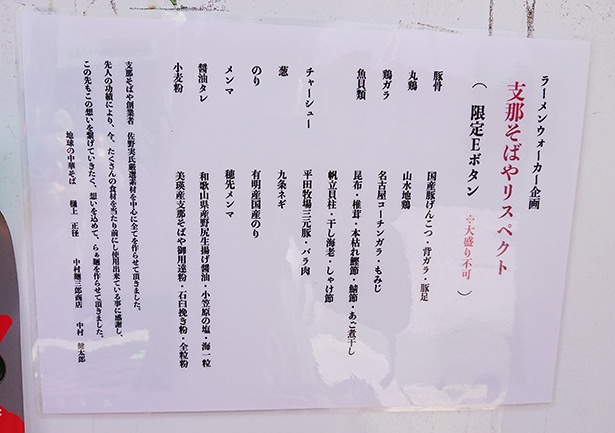 ラーメンウォーカー企画
支那そばやリスペクト
（ 限定Eボタン ※大盛り不可 ）
豚骨 国産豚げんこつ・背ガラ・豚足
丸鶏 山水地鶏
鶏ガラ 名古屋コーチンガラ・もみじ
魚貝類 昆布・椎茸・本枯れ鰹節・鯖節・あご煮干し
帆立貝柱・干し海老・しゃけ節
チャーシュー 平田牧場三元豚・バラ肉
葱 九条ネギ
のり 有明産国産のり
メンマ 穂先メンマ
醤油タレ 和歌山県産野尻生揚げ醤油・小笠原の塩・海一粒
小麦粉 美瑛産支那そばや御用達粉・石臼挽き粉・全粒粉
支那そばや創業者 佐野実氏厳選素材を中心に全てを作らせて頂きました。
先人の功績により、今、たくさんの食材を当たり前にし使用出来ている事に感謝し、
この先もこの想いを繋げていきたく、想いを込めて、らぁ麺を作らせて頂きました。
地球の中華そば 樋上 正径
中村麺三郎商店 中村 健太郎